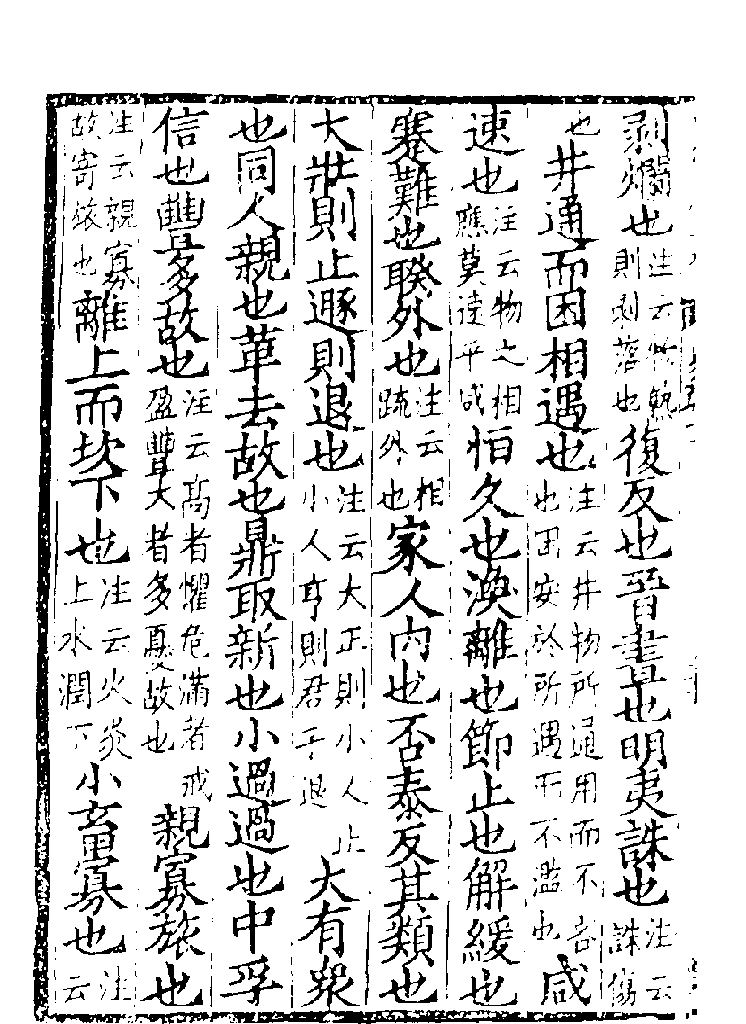 剥爛也注云物熟則剥落也復反也晉晝也明夷誅也注云誅傷
也井通而困相遇也注云井物所通用而不吝也困安於所遇而不濫也咸
速也注云物之相應莫速乎咸恒久也渙離也節止也解緩也
蹇難也睽外也注云相疏外也家人内也否泰反其類也
大壯則止遯則退也注云大正則小人止小人亨則君子退大有衆
也同人親也革去故也鼎取新也小過過也中孚
信也豐多故也注云高者懼危滿者戒盈豐大者多憂故也親寡旅也
注云親寡故寄旅也離上而坎下也注云火炎上水潤下小畜寡也注云